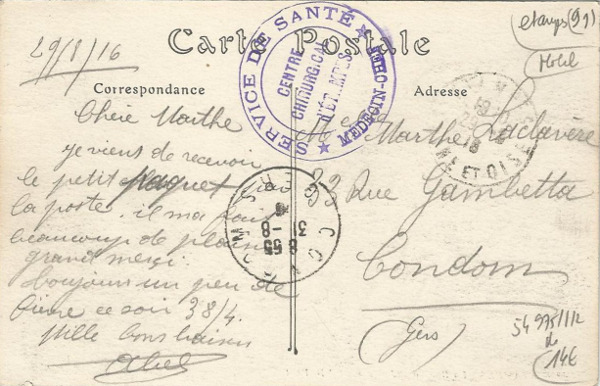 29/8/16
Carte Postale
Correspondance
Adresse
Chère Marthe
je viens de recevoir
le petit paquet par
la poste. il ma fait
beaucoup de plaisir
grand merçi.
Toujours un peu de
fièvre ce soir 38/4.
Mille bons baisers
Abel
SERVICE DE SANTÉ ★ MÉDECIN-CHEF ★
CENTRE
CHIRURGICAL
D'ÉTAMPES
Marthe Laclavère
33 Rue Gambetta
Condom
(Gers)
ET OISE
CONDOM GERS
8 55
31 -8
etamps (91)
54 975/1/2
14€